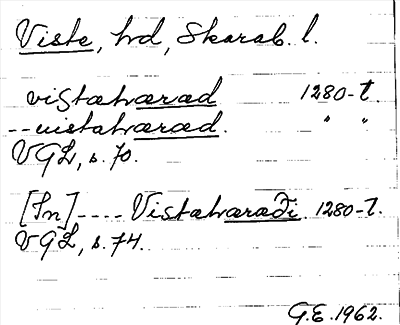 Viste, hd, Skarab. l.
vistæhærad 1280-t.
--uistahærad. " "
VGL, s. 70.
[In] ---- Vistæhæraði 1280-t.
VGL, s. 74.
G.E. 1962.